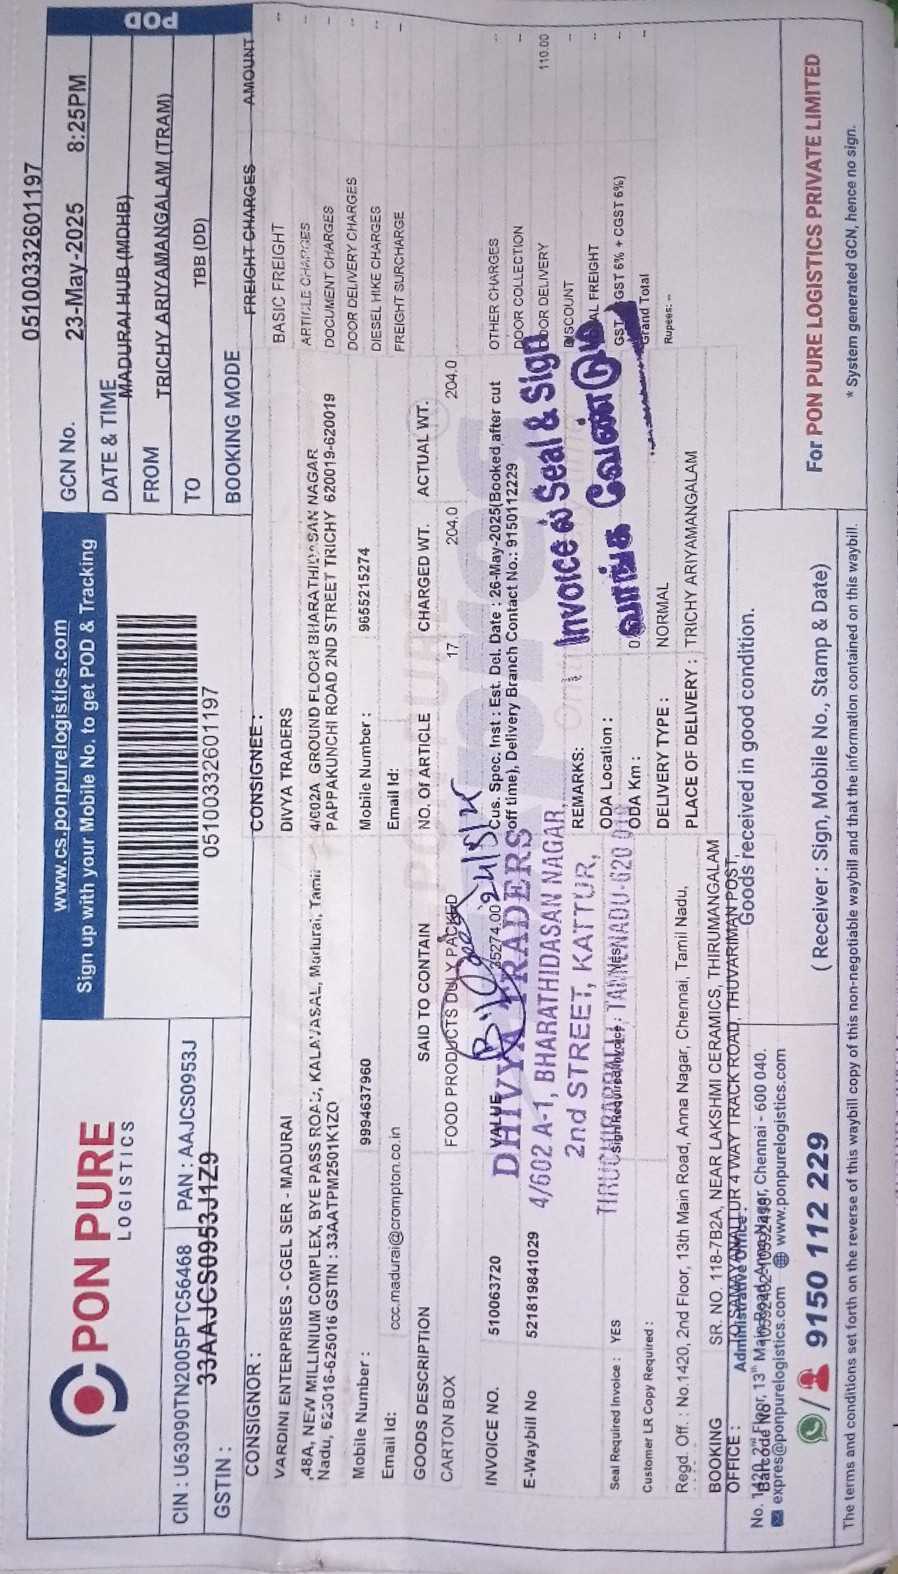 PON PURE
LOGISTICS
www.cs.ponpurelogistics.com
Sign up with your Mobile No. to get POD & Tracking
POD
GCN No. 05100332601197
DATE & TIME 23-May-2025 8:25PM
FROM MADURAI HUB (MDHB)
TO TRICHY ARIYAMANGALAM (TRAM)
BOOKING MODE TBB (DD)
CIN : U63090TN2005PTC56468 PAN : AAJCS0953J
GSTIN : 33AAJCS0953J1Z9
05100332601197
CONSIGNOR :
VARDINI ENTERPRISES - CGEL SER - MADURAI
,48A, NEW MILLINIUM COMPLEX, BYE PASS ROAD, KALAVASAL, Madurai, Tamil
Nadu, 625016-625016 GSTIN : 33AATPM2501K1ZO
Mobile Number : 9994637960
Email Id: ccc.madurai@crompton.co.in
CONSIGNEE :
DIVYA TRADERS
4/602A GROUND FLOOR BHARATHIDASAN NAGAR
PAPPAKUNCHI ROAD 2ND STREET TRICHY 620019-620019
Mobile Number : 9655215274
Email Id:
FREIGHT CHARGES AMOUNT
BASIC FREIGHT --
ARTICLE CHARGES --
DOCUMENT CHARGES --
DOOR DELIVERY CHARGES --
DIESEL HIKE CHARGES --
FREIGHT SURCHARGE --
OTHER CHARGES --
DOOR COLLECTION --
DOOR DELIVERY 110.00
DISCOUNT --
FREIGHT --
GST GST 6% + CGST 6%) --
Grand Total --
Rupees: --
GOODS DESCRIPTION SAID TO CONTAIN NO. Of ARTICLE CHARGED WT. ACTUAL WT.
CARTON BOX FOOD PRODUCTS DULY PACKED 17 204.0 204.0
INVOICE NO. 510063720 VALUE 35274.00
E-Waybill No 521819841029
Cus. Spec. Inst : Est. Del. Date : 26-May-2025(Booked after cut
off time), Delivery Branch Contact No.: 9150112229
24/5/25
DHIVYA TRADERS
4/602 A-1, BHARATHIDASAN NAGAR,
2nd STREET, KATTUR,
TIRUCHIRAPPALLI, TAMILNADU-620 019
Invoice ல் Seal & Sign
வாங்க வேண்டும்
REMARKS:
ODA Location :
ODA Km :
Seal Required Invoice : YES
Sign Required Invoice : Yes
Customer LR Copy Required :
DELIVERY TYPE : NORMAL
PLACE OF DELIVERY : TRICHY ARIYAMANGALAM
Regd. Off. : No.1420, 2nd Floor, 13th Main Road, Anna Nagar, Chennai, Tamil Nadu,
BOOKING OFFICE : SR. NO. 118-7B2A, NEAR LAKSHMI CERAMICS, THIRUMANGALAM
TO SAMAYANALLUR 4 WAY TRACK ROAD, THUVARIMAN POST,
Administrative Office :
No. 1420, 2nd Floor, 13th Main Road, Anna Nagar, Chennai - 600 040.
Barcode No
expres@ponpurelogistics.com www.ponpurelogistics.com
9150 112 229
Goods received in good condition.
( Receiver : Sign, Mobile No., Stamp & Date)
For PON PURE LOGISTICS PRIVATE LIMITED
* System generated GCN, hence no sign.
The terms and conditions set forth on the reverse of this waybill copy of this non-negotiable waybill and that the information contained on this waybill.